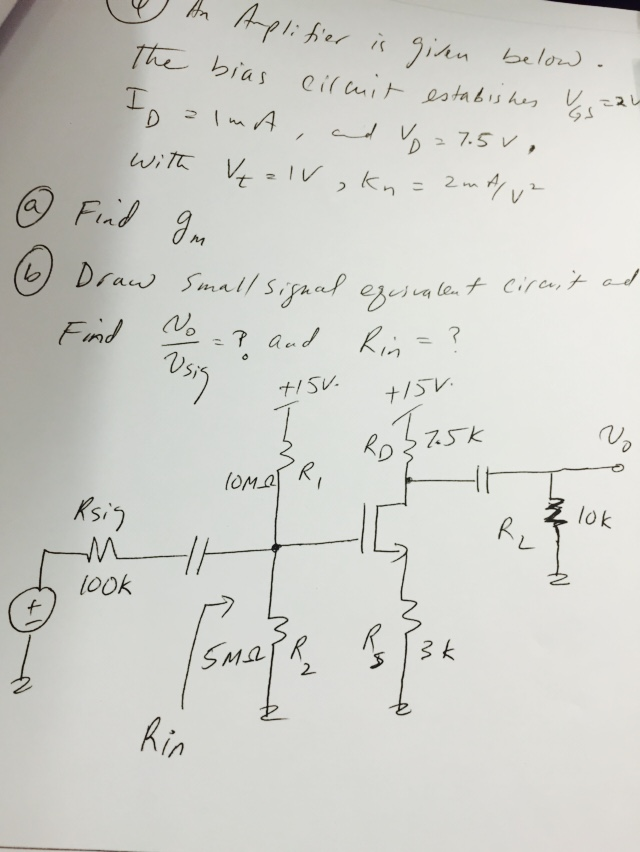 An Amplifier is given below.
The bias circuit estabishes V_GS = 2V
I_D = 1mA, and V_D = 7.5 V,
with V_t = 1V, K_n = 2mA/V²
(a) Find g_m
(b) Draw small signal equivalent circuit and
Find v_o/v_sig = ? and Rin = ?
+15V. +15V.
R_D 7.5K
v_o
10MΩ R_1
Rsig
R_L 10k
100k
+
5MΩ R_2
R_s 3k
Rin